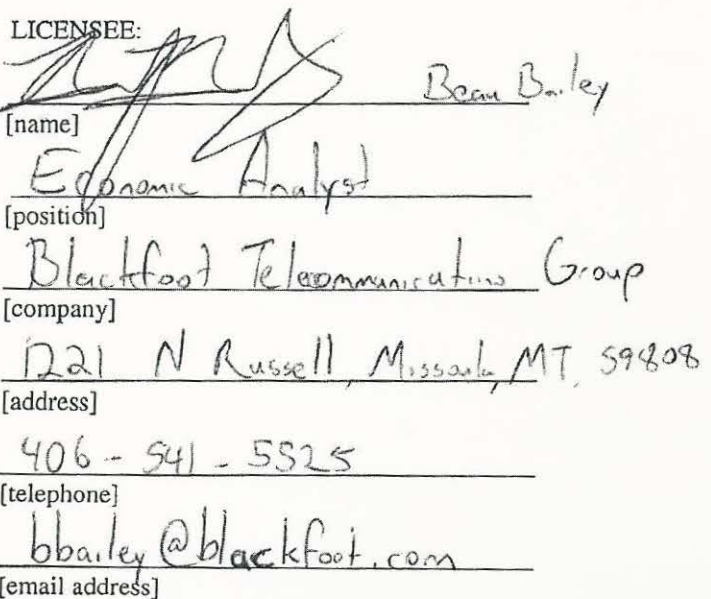 LICENSEE:
Beau Bailey
[name]
Economic Analyst
[position]
Blackfoot Telecommunications Group
[company]
1221 N Russell, Missoula, MT, 59808
[address]
406-541-5525
[telephone]
bbailey@blackfoot.com
[email address]